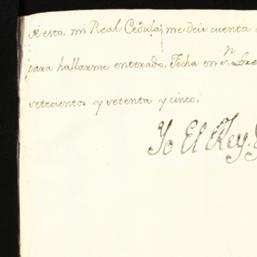 de esta mi Real Cedula, me deis cuenta
para hallarme enterado. Fecha en Sn. Lore
setecientos y setenta y cinco.
Yo El Rey.